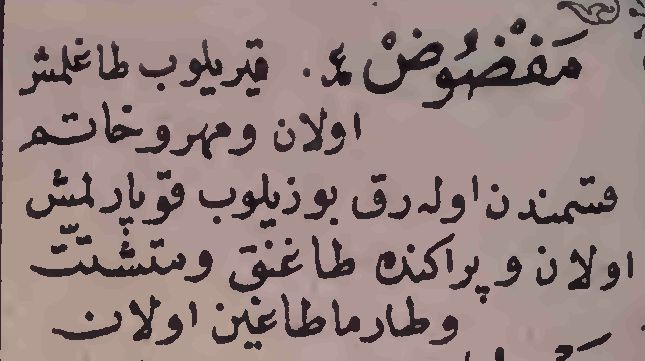 مَفْضُوضْ ع. قیریلوب طاغلمش
اولان ومهر وخاتم
قسمندن اوله رق بوزیلوب قوپارلمش
اولان وپراکنده طاغنق ومتشتّت
وطارماطاغین اولان